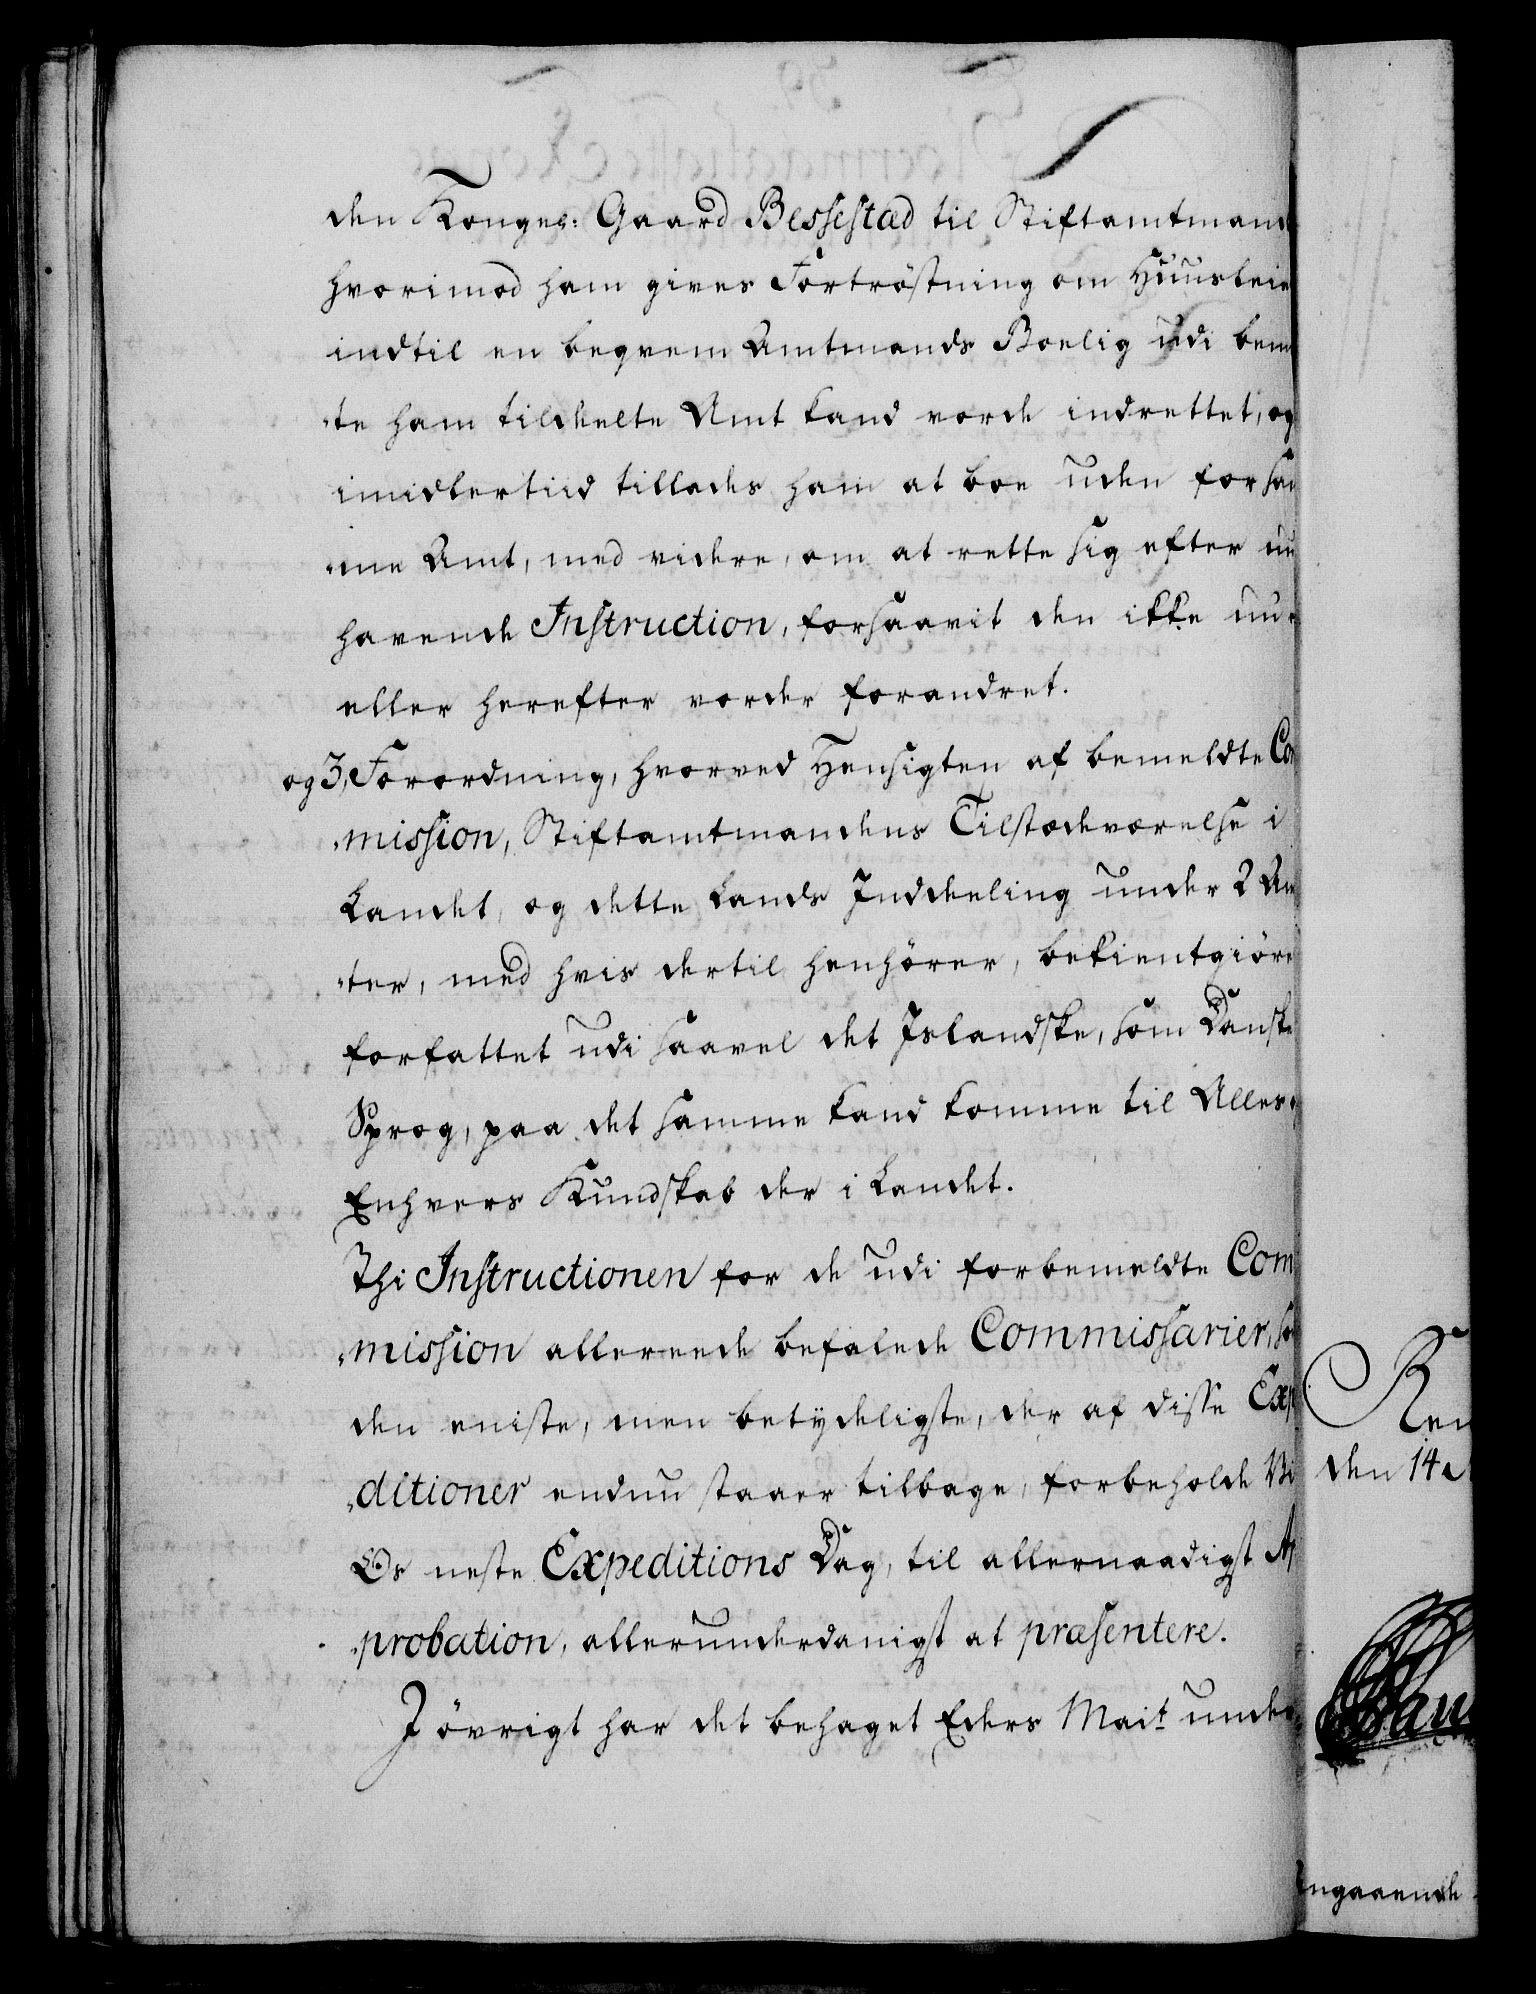 den Kongel: Gaard Bessestad til Stiftamtmand
hvorimod ham gives Fortröstning om Huusleie
indtil en beqvem Amtmands Boelig udi bem
"te ham tildeelte Amt kand vorde indrettet, og
imidlertiid tillades ham at boe uden for sam
"me Amt, med videre, om at rette sig efter nu
havende Instruction, forsaavit den ikke nu
eller herefter vorder forandret.
og 3, Forordning, hvorved Hensigten af bemeldte Com
"mission, Stiftamtmandens Tilstædeværelse i
Landet, og dette Lands Inddeeling under 2 Am
"ter, med hvis dertil henhörer, bekientgiöres
forfattet udi saavel det Islandske, som Danske
Sprog, paa det samme kand komme til Alles
Enhvers Kundskab der i Landet.
Thi Instructionen for de udi forbemeldte Com
"mission allereede befalede Commissarier, som
den eniste, men betydeligste, der af disse Expe
"ditioner endnu staaer tilbage, forbeholde Vi
Os neste Expeditions Dag, til allernaadigst Ap
"probation, allerunderdanigst at præsentere.
I övrigt har det behaget Eders Mait under
Ren
den 14
ngaaende